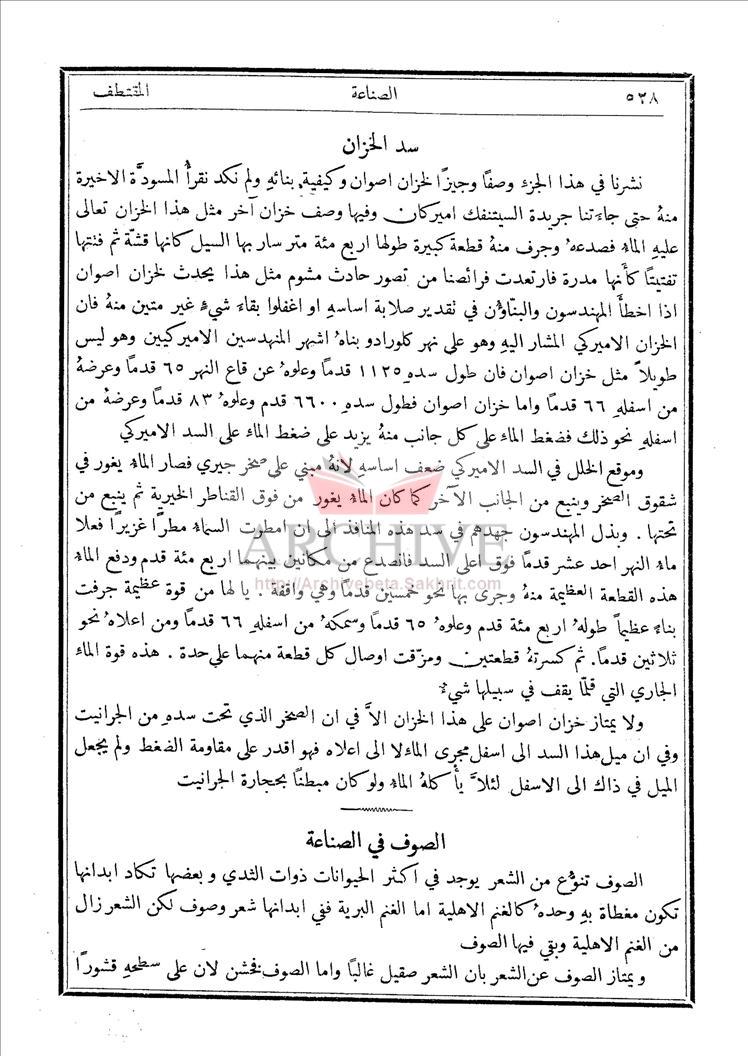 ٥٢٨ الصناعة المقتطف
سد الخزان
نشرنا في هذا الجزء وصفًا وجيزًا لخزان اصوان وكيفية بنائهِ ولم نكد نقرأُ المسودَّة الاخيرة
منهُ حتى جاءَتنا جريدة السيتنفك اميركان وفيها وصف خزان آخر مثل هذا الخزان تعالى
عليهِ الماءُ فصدعهُ وجرف منهُ قطعة كبيرة طولها اربع مئة متر سار بها السيل كانها قشَّة ثم فتتها
تفتيتًا كأنها مدرة فارتعدت فرائصنا من تصور حادث مشوم مثل هذا يحدث لخزان اصوان
اذا اخطأَ المهندسون والبنَّاؤُن في تقدير صلابة اساسهِ او اغفلوا بقاء شيءٍ غير متين منهُ فان
الخزان الاميركي المشار اليهِ وهو على نهر كلورادو بناهُ اشهر المنهدسين الاميركيين وهو ليس
طويلاً مثل خزان اصوان فان طول سدهِ ١١٢٥ قدمًا وعلوهُ عن قاع النهر ٦٥ قدمًا وعرضهُ
من اسفلهِ ٦٦ قدمًا واما خزان اصوان فطول سدهِ ٦٦٠٠ قدم وعلوهُ ٨٣ قدمًا وعرضهُ من
اسفلهِ نحو ذلك فضغط الماء على كل جانب منهُ يزيد على ضغط الماء على السد الاميركي
وموقع الخلل في السد الاميركي ضعف اساسهِ لانهُ مبني على صخر جيري فصار الماءُ يغور في
شقوق الصخر وينبع من الجانب الآخر كما كان الماءُ يغور من فوق القناطر الخيرية ثم ينبع من
تحتها . وبذل المهندسون جهدهم في سد هذه المنافذ الى ان امطرت السماءُ مطرًا غزيرًا فعلا
ماءُ النهر احد عشر قدمًا فوق اعلى السد فانصدع من مكانين بينهما اربع مئة قدم ودفع الماءُ
هذه القطعة العظيمة منهُ وجرى بها نحو خمسين قدمًا وهي واقفة . يا لها من قوة عظيمة جرفت
بناءً عظيمًا طولهُ اربع مئة قدم وعلوهُ ٦٥ قدمًا وسمكهُ من اسفلهِ ٦٦ قدمًا ومن اعلاهُ نحو
ثلاثين قدمًا. ثم كسرتهُ قطعتين ومزقت اوصال كل قطعة منهما على حدة . هذه قوة الماء
الجاري التي قلَّما يقف في سبيلها شيءٌ
ولا يمتاز خزان اصوان على هذا الخزان الاَّ في ان الصخر الذي تحت سدهِ من الجرانيت
وفي ان ميل هذا السد الى اسفل مجرى الماء لا الى اعلاه فهو اقدر على مقاومة الضغط ولم يجعل
الميل في ذاك الى الاسفل لئلاَّ يأكلهُ الماءُ ولو كان مبطنًا بحجارة الجرانيت
الصوف في الصناعة
الصوف تنوُّع من الشعر يوجد في اكثر الحيوانات ذوات الثدي وبعضها تكاد ابدانها
تكون مغطاة بهِ وحدهُ كالغنم الاهلية اما الغنم البرية ففي ابدانها شعر وصوف لكن الشعر زال
من الغنم الاهلية وبقي فيها الصوف
ويمتاز الصوف عن الشعر بان الشعر صقيل غالبًا واما الصوف فخشن لان على سطحهِ قشورًا
ARCHIVE
http://Archivebeta.Sakhrit.com